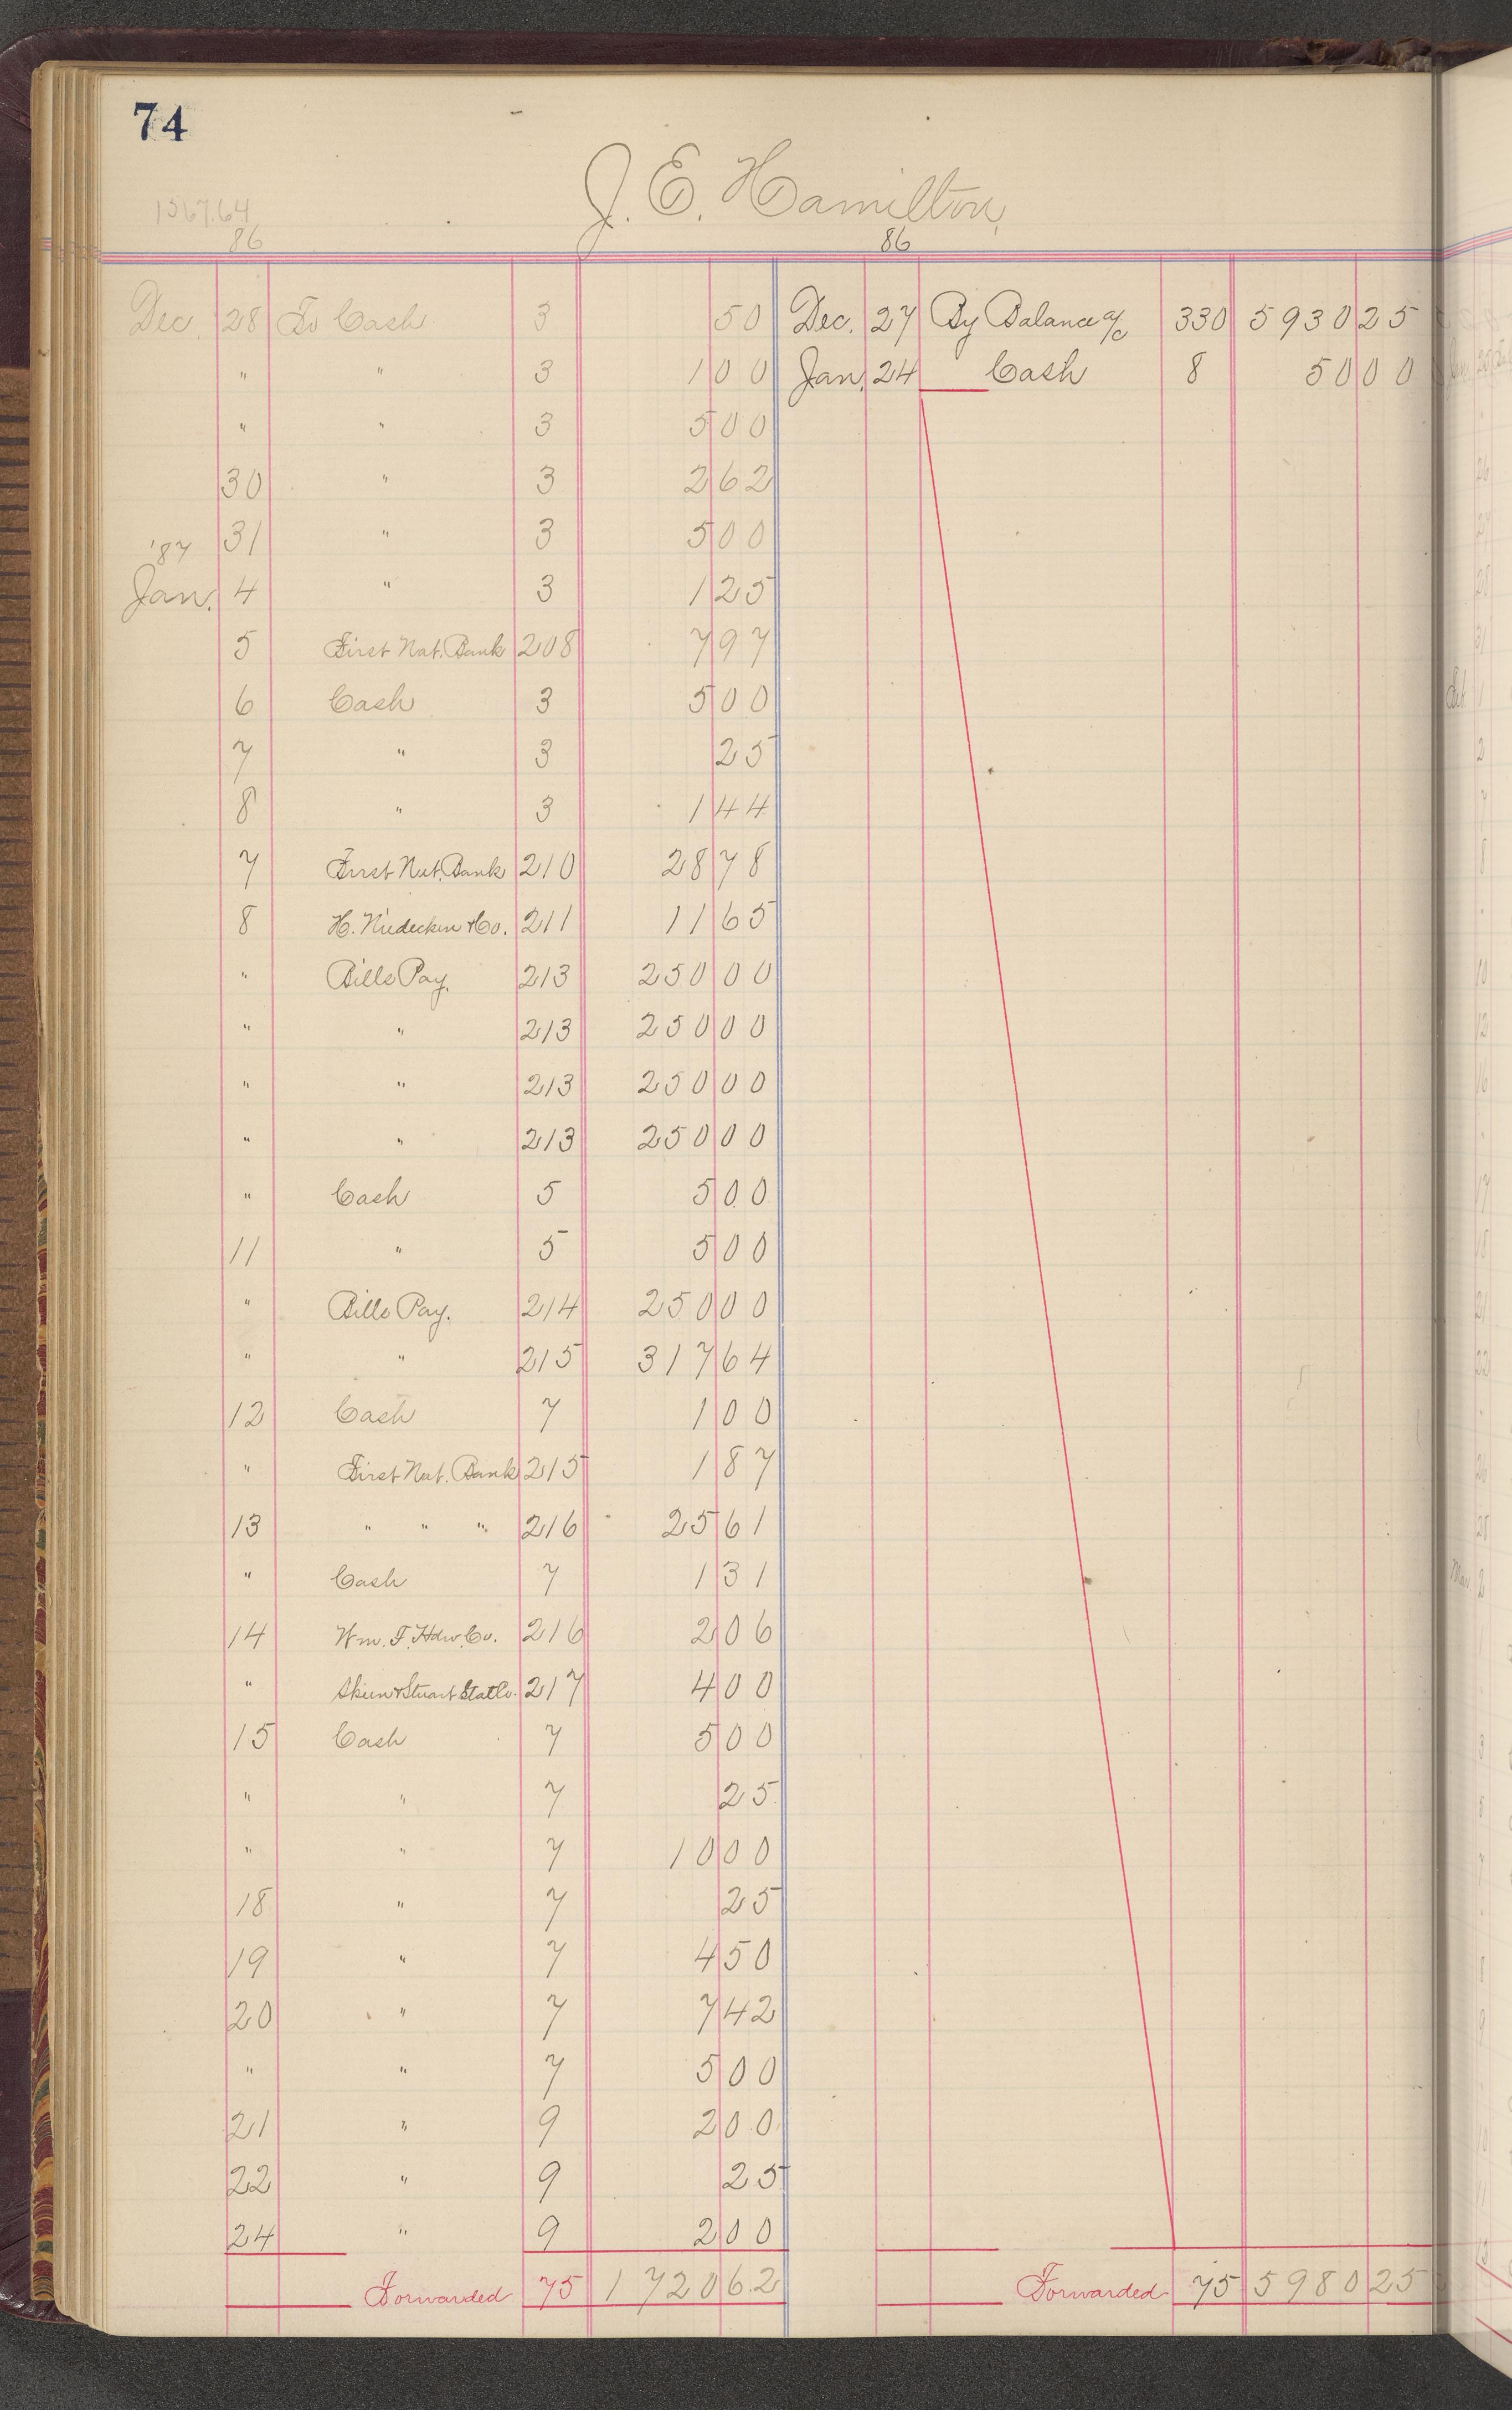 74
J. E. Hamilton
1367.64
86
86
Dec. 28 To Cash 3 50
" " 3 1 00
" " 3 5 00
30 " 3 2 62
31 " 3 5 00
'87
Jan. 4 " 3 1 25
5 First Nat. Bank 208 7 97
6 Cash 3 5 00
7 " 3 25
8 " 3 1 44
7 First Nat. Bank 210 28 78
8 H. Niedecken & Co. 211 11 65
" Bills Pay. 213 250 00
" " 213 250 00
" " 213 250 00
" " 213 250 00
" Cash 5 5 00
11 " 5 5 00
" Bills Pay. 214 250 00
" " 215 317 64
12 Cash 7 1 00
" First Nat. Bank 215 1 87
13 " " " 216 25 61
" Cash 7 1 31
14 Wm. F. Hdw. Co. 216 2 06
" Skeen & Stuart Stat Co. 217 4 00
15 Cash 7 5 00
" " 7 25
" " 7 10 00
18 " 7 25
19 " 7 4 50
20 " 7 7 42
" " 7 5 00
21 " 9 2 00
22 " 9 25
24 " 9 2 00
Forwarded 75 1720 62
Dec. 27 By Balance a/c 330 5930 25
Jan. 24 Cash 8 50 00
Forwarded 75 5980 25